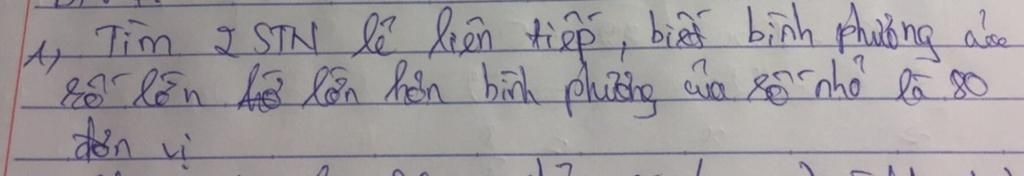 1, Tìm 2 STN lẻ liên tiếp, biết bình phương của
số lớn lớn hơn bình phương của số nhỏ là 80
đơn vị